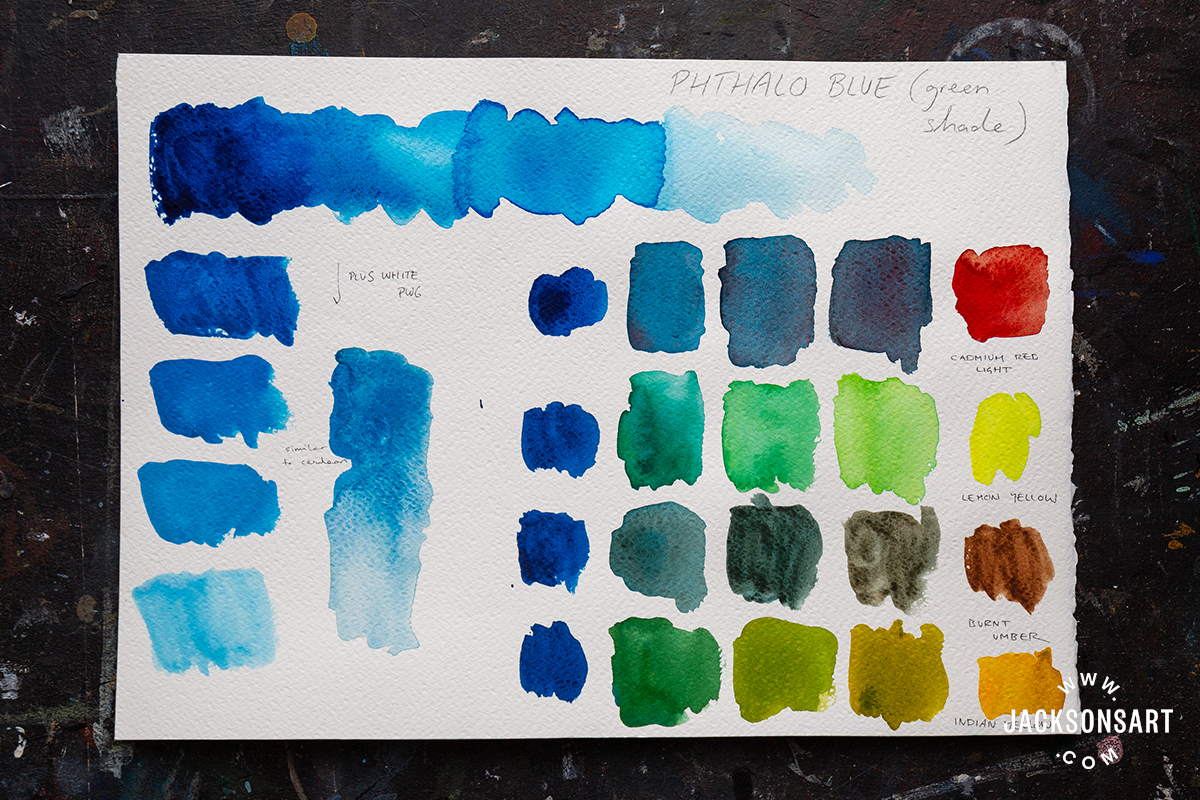 PHTHALO BLUE (green
shade)
PLUS WHITE
PW6
similar
to cerulean
CADMIUM RED
LIGHT
LEMON YELLOW
BURNT
UMBER
INDIAN YELLOW
WWW.
JACKSONSART
.COM